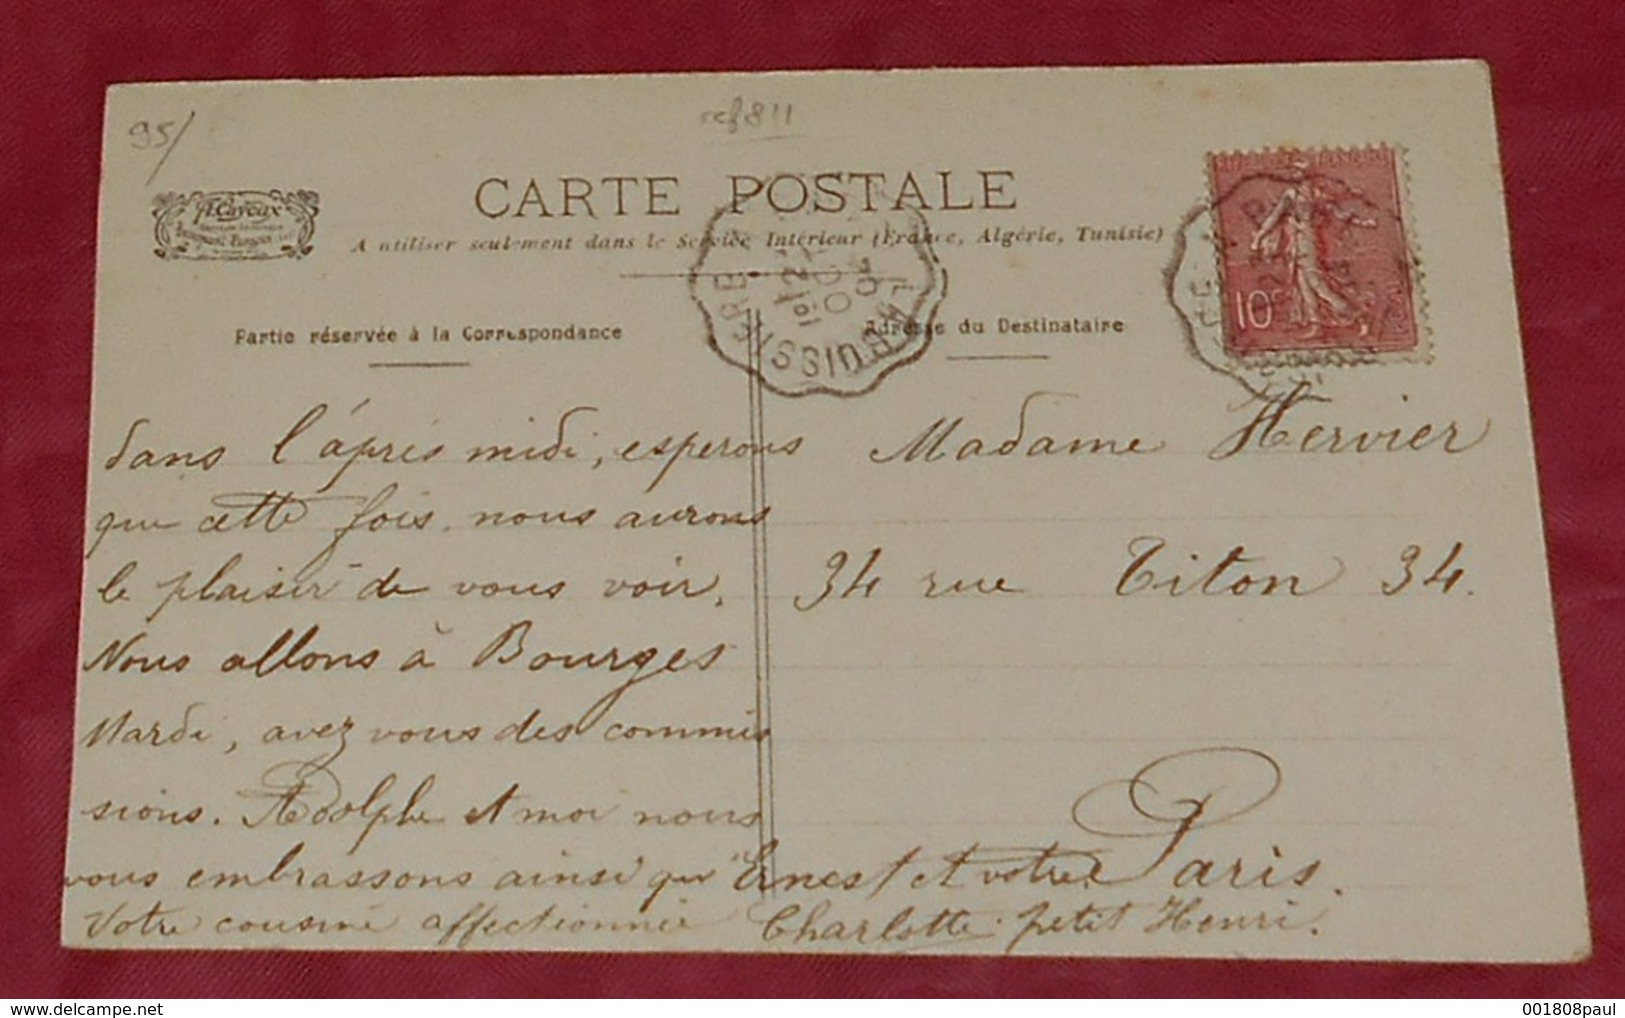 95/
ccf 811
A. Cayeux
CARTE POSTALE
A utiliser seulement dans le Service Intérieur (France, Algérie, Tunisie)
Partie réservée à la Correspondance
Adresse du Destinataire
10c
dans l'après midi, esperons
que cette fois. nous aurons
le plaisir de vous voir.
Nous allons à Bourges
Mardi, avez vous des commis
sions. Adolphe et moi nous
vous embrassons ainsi que Ernest et votre
Votre cousine affectionnée Charlotte. petit Henri.
Madame Hervier
34 rue Titon 34.
Paris.
delcampe.net
001808paul